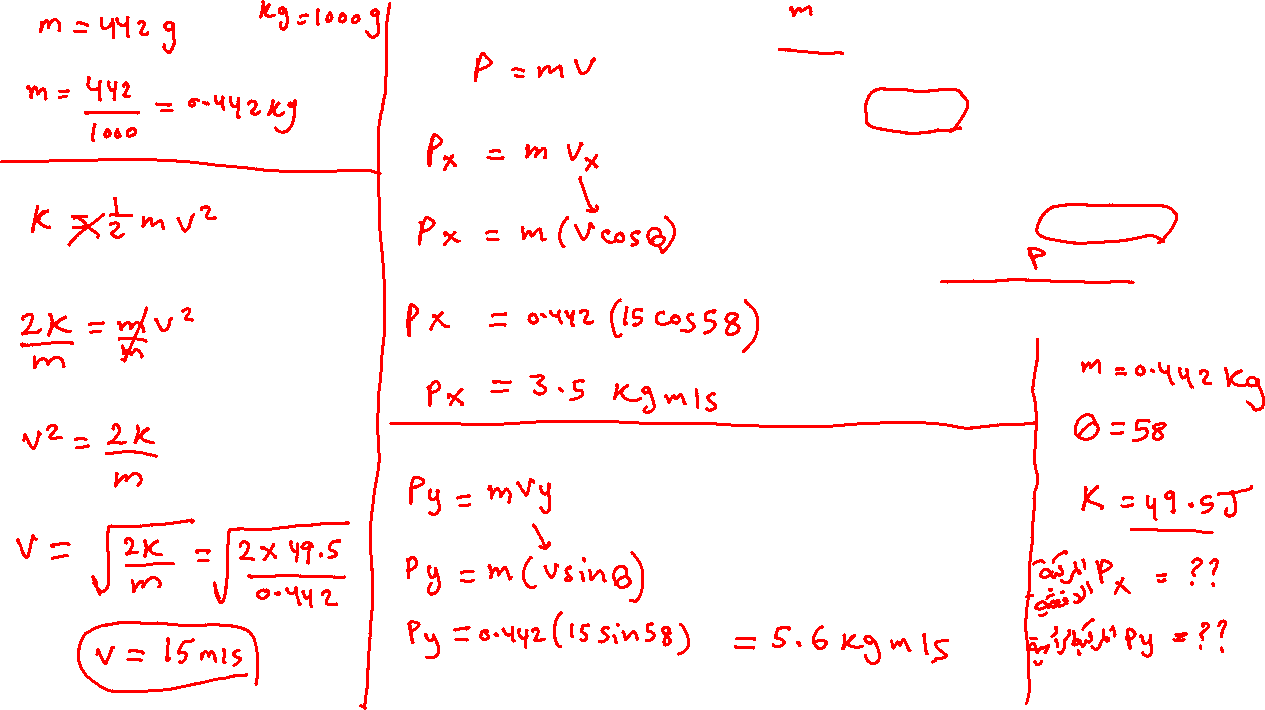 m = 442 g
kg = 1000 g
m = 442/1000 = 0.442 kg
K = 1/2 m v²
2K/m = m/m v²
v² = 2K/m
v = √(2K/m) = √(2 × 49.5/0.442)
v = 15 m/s
m
P = m v
Px = m vx
Px = m (v cosθ)
Px = 0.442 (15 cos 58)
Px = 3.5 kg m/s
Py = m vy
Py = m (v sinθ)
Py = 0.442 (15 sin 58) = 5.6 kg m/s
P
m = 0.442 kg
θ = 58
K = 49.5 J
المركبة الافقية Px = ??
المركبة الرأسية Py = ??